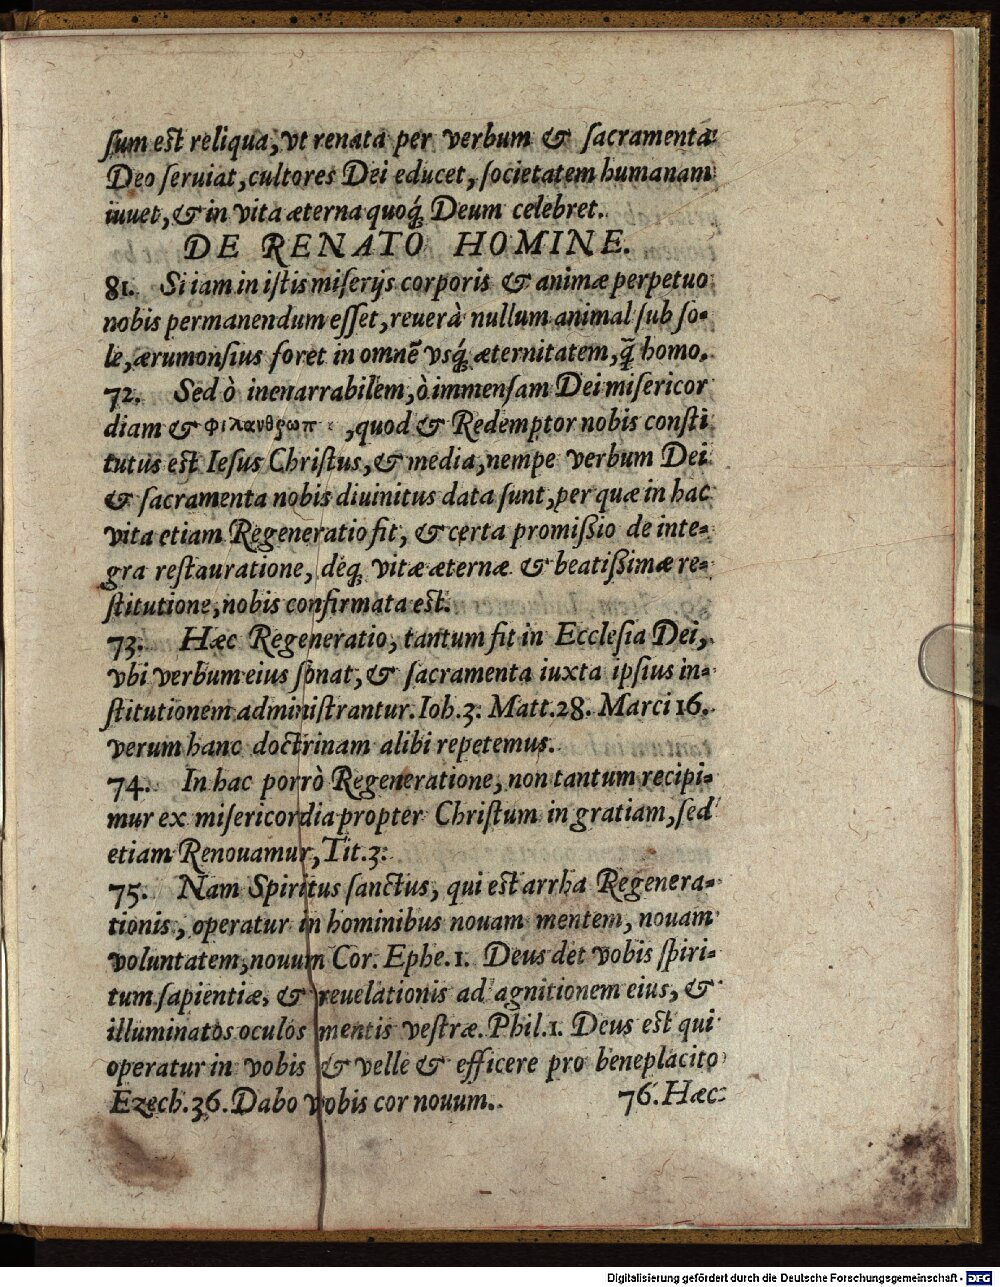 sum est reliqua, vt renata per verbum & sacramenta
Deo seruiat, cultores Dei educet, societatem humanam
iuuet, & in vita æterna quoq́; Deum celebret.
DE RENATO HOMINE.
81. Si iam in istis miserijs corporis & animæ perpetuo
nobis permanendum esset, reuerà nullum animal sub so-
le, ærumonsius foret in omnē vsq́; æternitatem, q̄̀ homo.
72. Sed ò inenarrabilem, ò immensam Dei misericor
diam & φιλανθρωπ , quod & Redemptor nobis consti
tutus est Iesus Christus, & media, nempe verbum Dei
& sacramenta nobis diuinitus data sunt, per quæ in hac
vita etiam Regeneratio fit, & certa promißio de inte-
gra restauratione, deq; vitæ æternæ & beatißimæ re-
stitutione, nobis confirmata est.
73. Hæc Regeneratio, tantum fit in Ecclesia Dei,
vbi verbum eius sonat, & sacramenta iuxta ipsius in-
stitutionem administrantur. Ioh.3. Matt.28. Marci 16.
verum hanc doctrinam alibi repetemus.
74. In hac porrò Regeneratione, non tantum recipi-
mur ex misericordia propter Christum in gratiam, sed
etiam Renouamur, Tit.3.
75. Nam Spiritus sanctus, qui est arrha Regenera-
tionis, operatur in hominibus nouam mentem, nouam
voluntatem, nouum Cor. Ephe.1. Deus det vobis spiri-
tum sapientiæ, & reuelationis ad agnitionem eius, &
illuminatos oculos mentis vestræ. Phil.1. Deus est qui
operatur in vobis & velle & efficere pro beneplacito
Ezech.36. Dabo vobis cor nouum.
76. Hæc
Digitalisierung gefördert durch die Deutsche Forschungsgemeinschaft - DFG